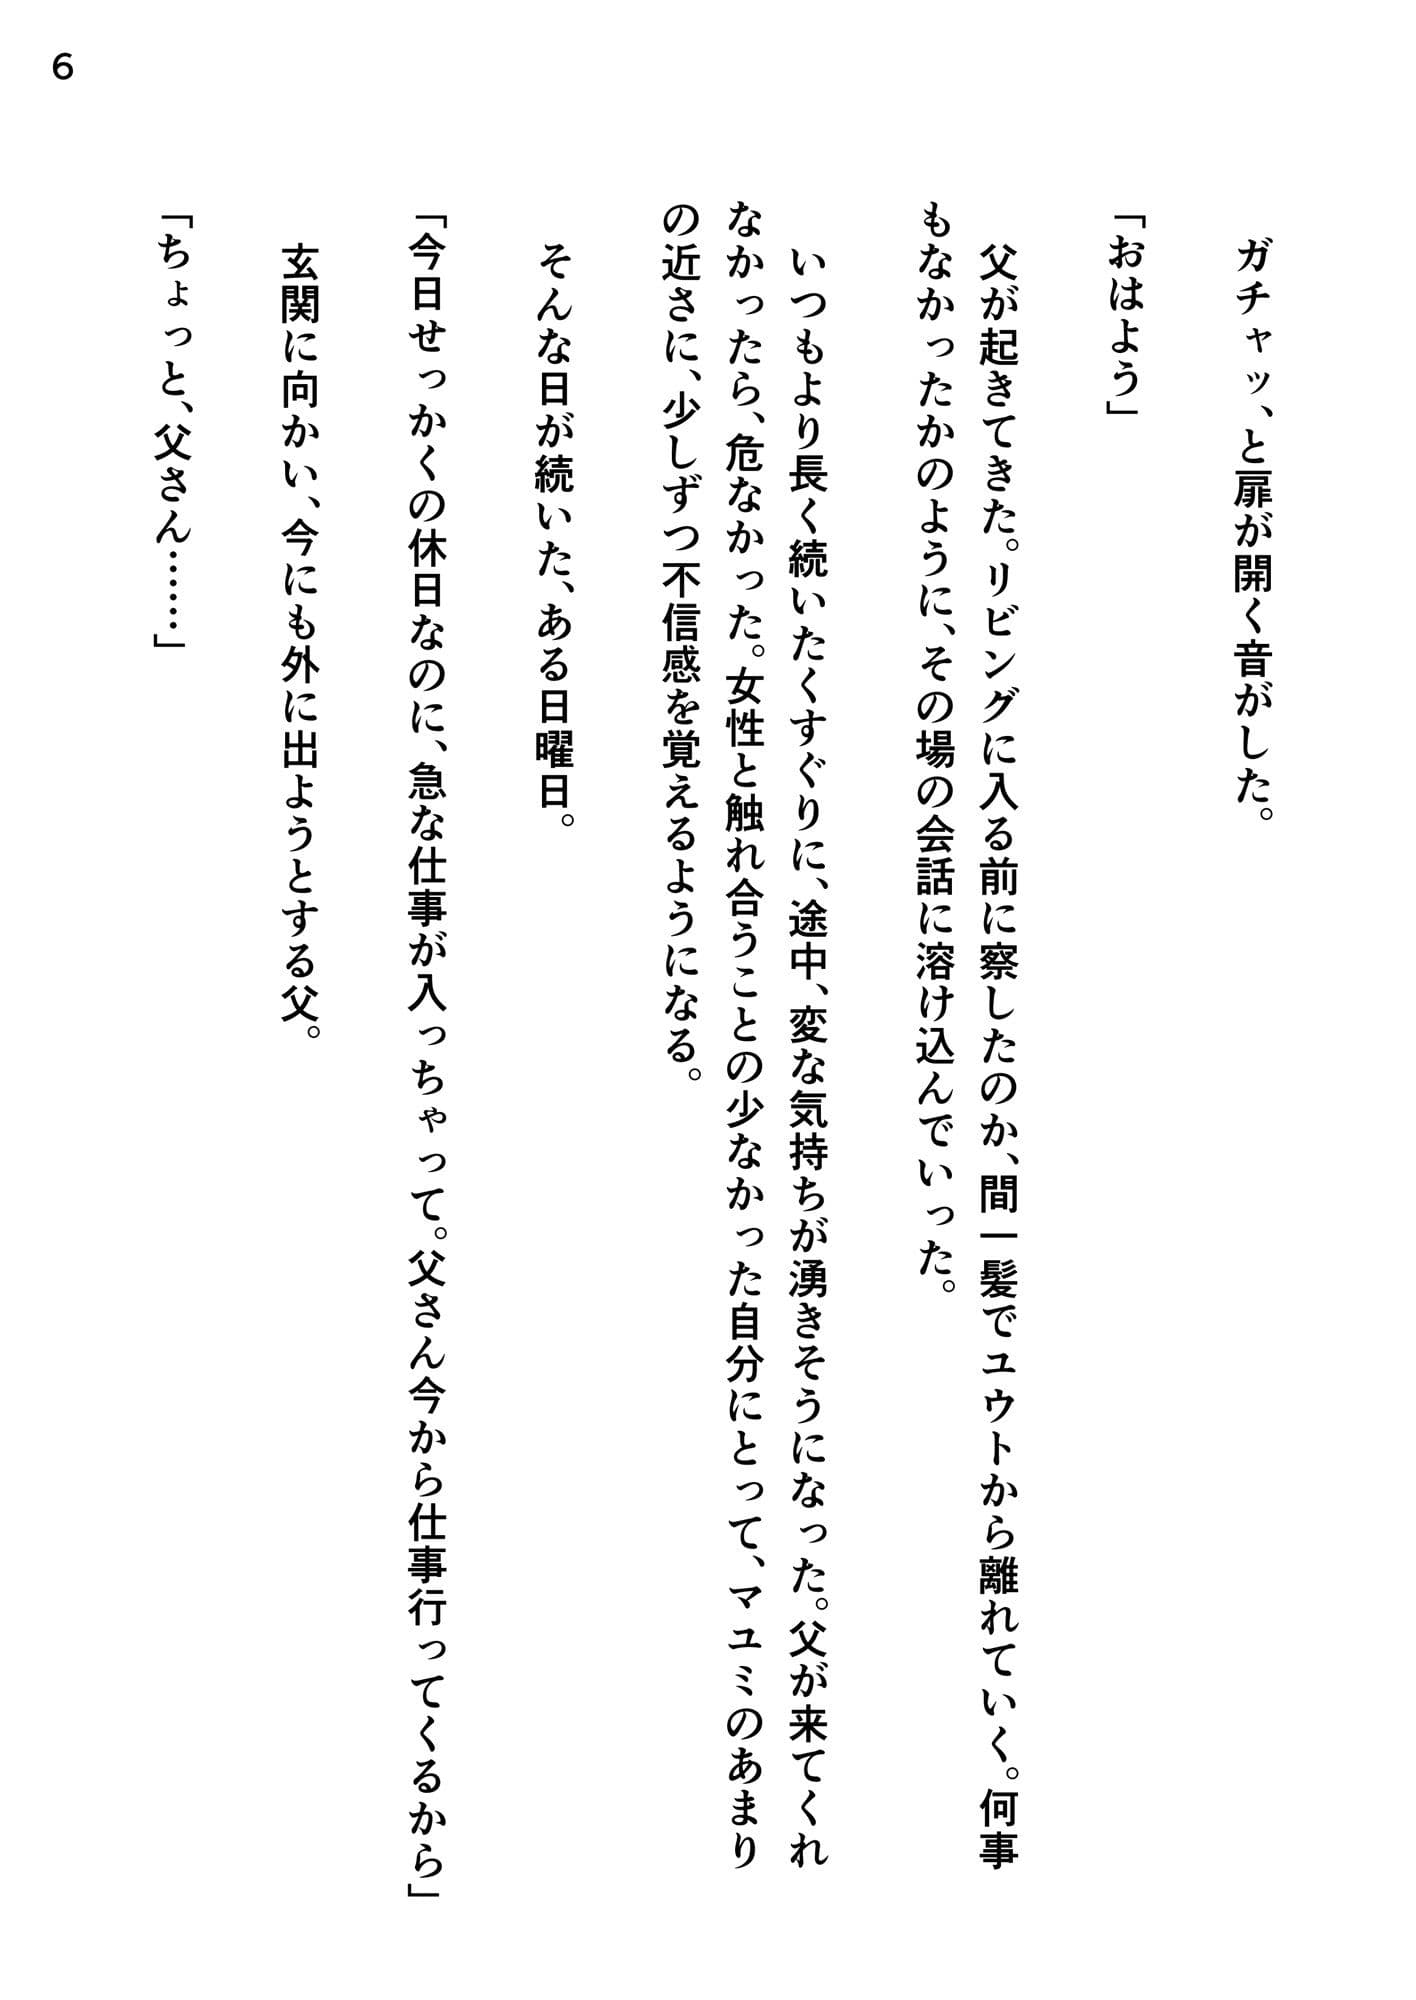 6
ガチャッ、と扉が開く音がした。
「おはよう」
父が起きてきた。リビングに入る前に察したのか、間一髪でユウトから離れていく。何事
もなかったかのように、その場の会話に溶け込んでいった。
いつもより長く続いたくすぐりに、途中、変な気持ちが湧きそうになった。父が来てくれ
なかったら、危なかった。女性と触れ合うことの少なかった自分にとって、マユミのあまり
の近さに、少しずつ不信感を覚えるようになる。
そんな日が続いた、ある日曜日。
「今日せっかくの休日なのに、急な仕事が入っちゃって。父さん今から仕事行ってくるから」
玄関に向かい、今にも外に出ようとする父。
「ちょっと、父さん……」